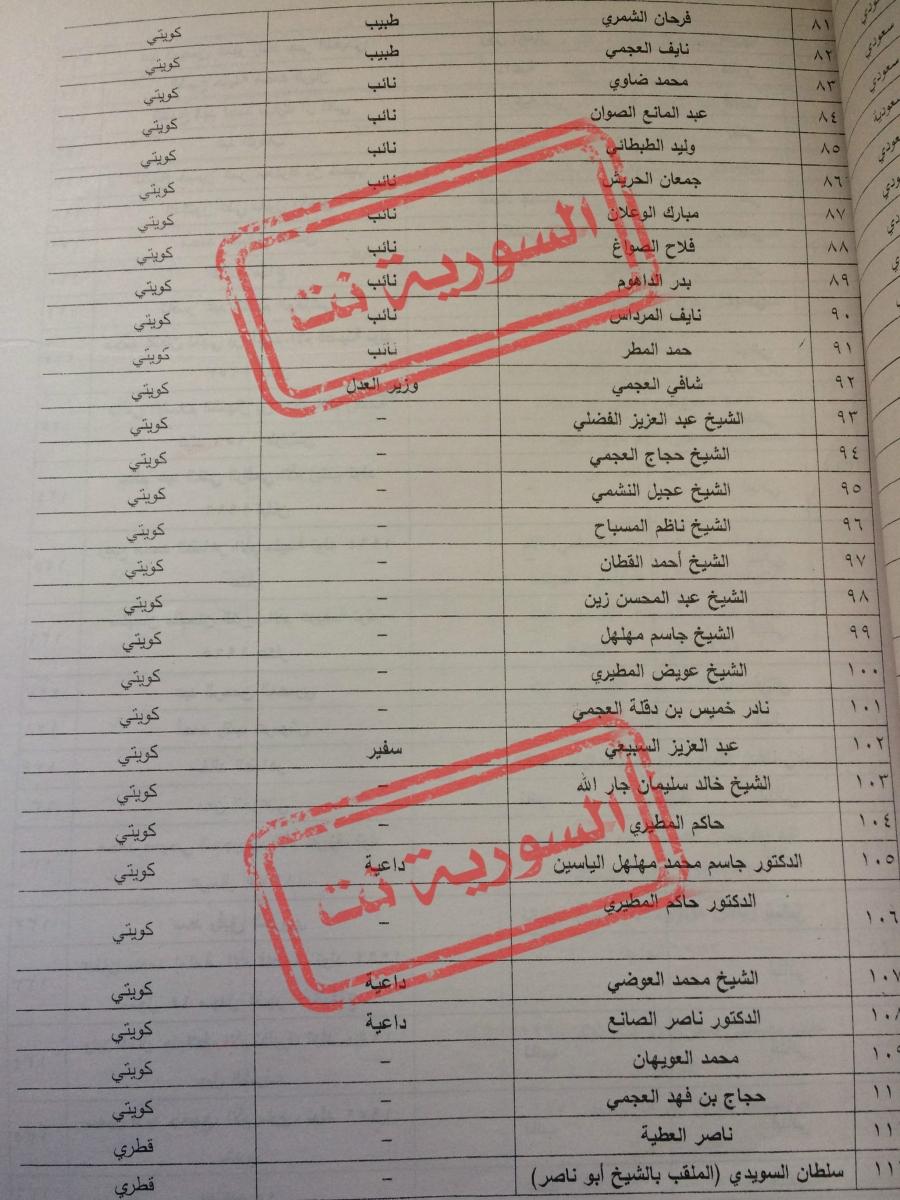 ٨١ فرحان الشمري طبيب كويتي
٨٢ نايف العجمي طبيب كويتي
٨٣ محمد ضاوي نائب كويتي
٨٤ عبد المانع الصوان نائب كويتي
٨٥ وليد الطبطائي نائب كويتي
٨٦ جمعان الحريش نائب كويتي
٨٧ مبارك الوعلان نائب كويتي
٨٨ فلاح الصواغ نائب كويتي
٨٩ بدر الداهوم نائب كويتي
٩٠ نايف المرداس نائب كويتي
٩١ حمد المطر نائب كويتي
٩٢ شافي العجمي وزير العدل كويتي
٩٣ الشيخ عبد العزيز الفضلي – كويتي
٩٤ الشيخ حجاج العجمي – كويتي
٩٥ الشيخ عجيل النشمي – كويتي
٩٦ الشيخ ناظم المسباح – كويتي
٩٧ الشيخ أحمد القطان – كويتي
٩٨ الشيخ عبد المحسن زين – كويتي
٩٩ الشيخ جاسم مهلهل – كويتي
١٠٠ الشيخ عويض المطيري – كويتي
١٠١ نادر خميس بن دقلة العجمي – كويتي
١٠٢ عبد العزيز السبيعي سفير كويتي
١٠٣ الشيخ خالد سليمان جار الله – كويتي
١٠٤ حاكم المطيري – كويتي
١٠٥ الدكتور جاسم محمد مهلهل الياسين داعية كويتي
١٠٦ الدكتور حاكم المطيري – كويتي
١٠٧ الشيخ محمد العوضي داعية كويتي
١٠٨ الدكتور ناصر الصانع داعية كويتي
١٠٩ محمد العويهان – كويتي
١١ حجاج بن فهد العجمي – كويتي
١١ ناصر العطية – قطري
١١ سلطان السويدي (الملقب بالشيخ أبو ناصر) – قطري
السورية نت
السورية نت
سعودي
سعودي
سعودية